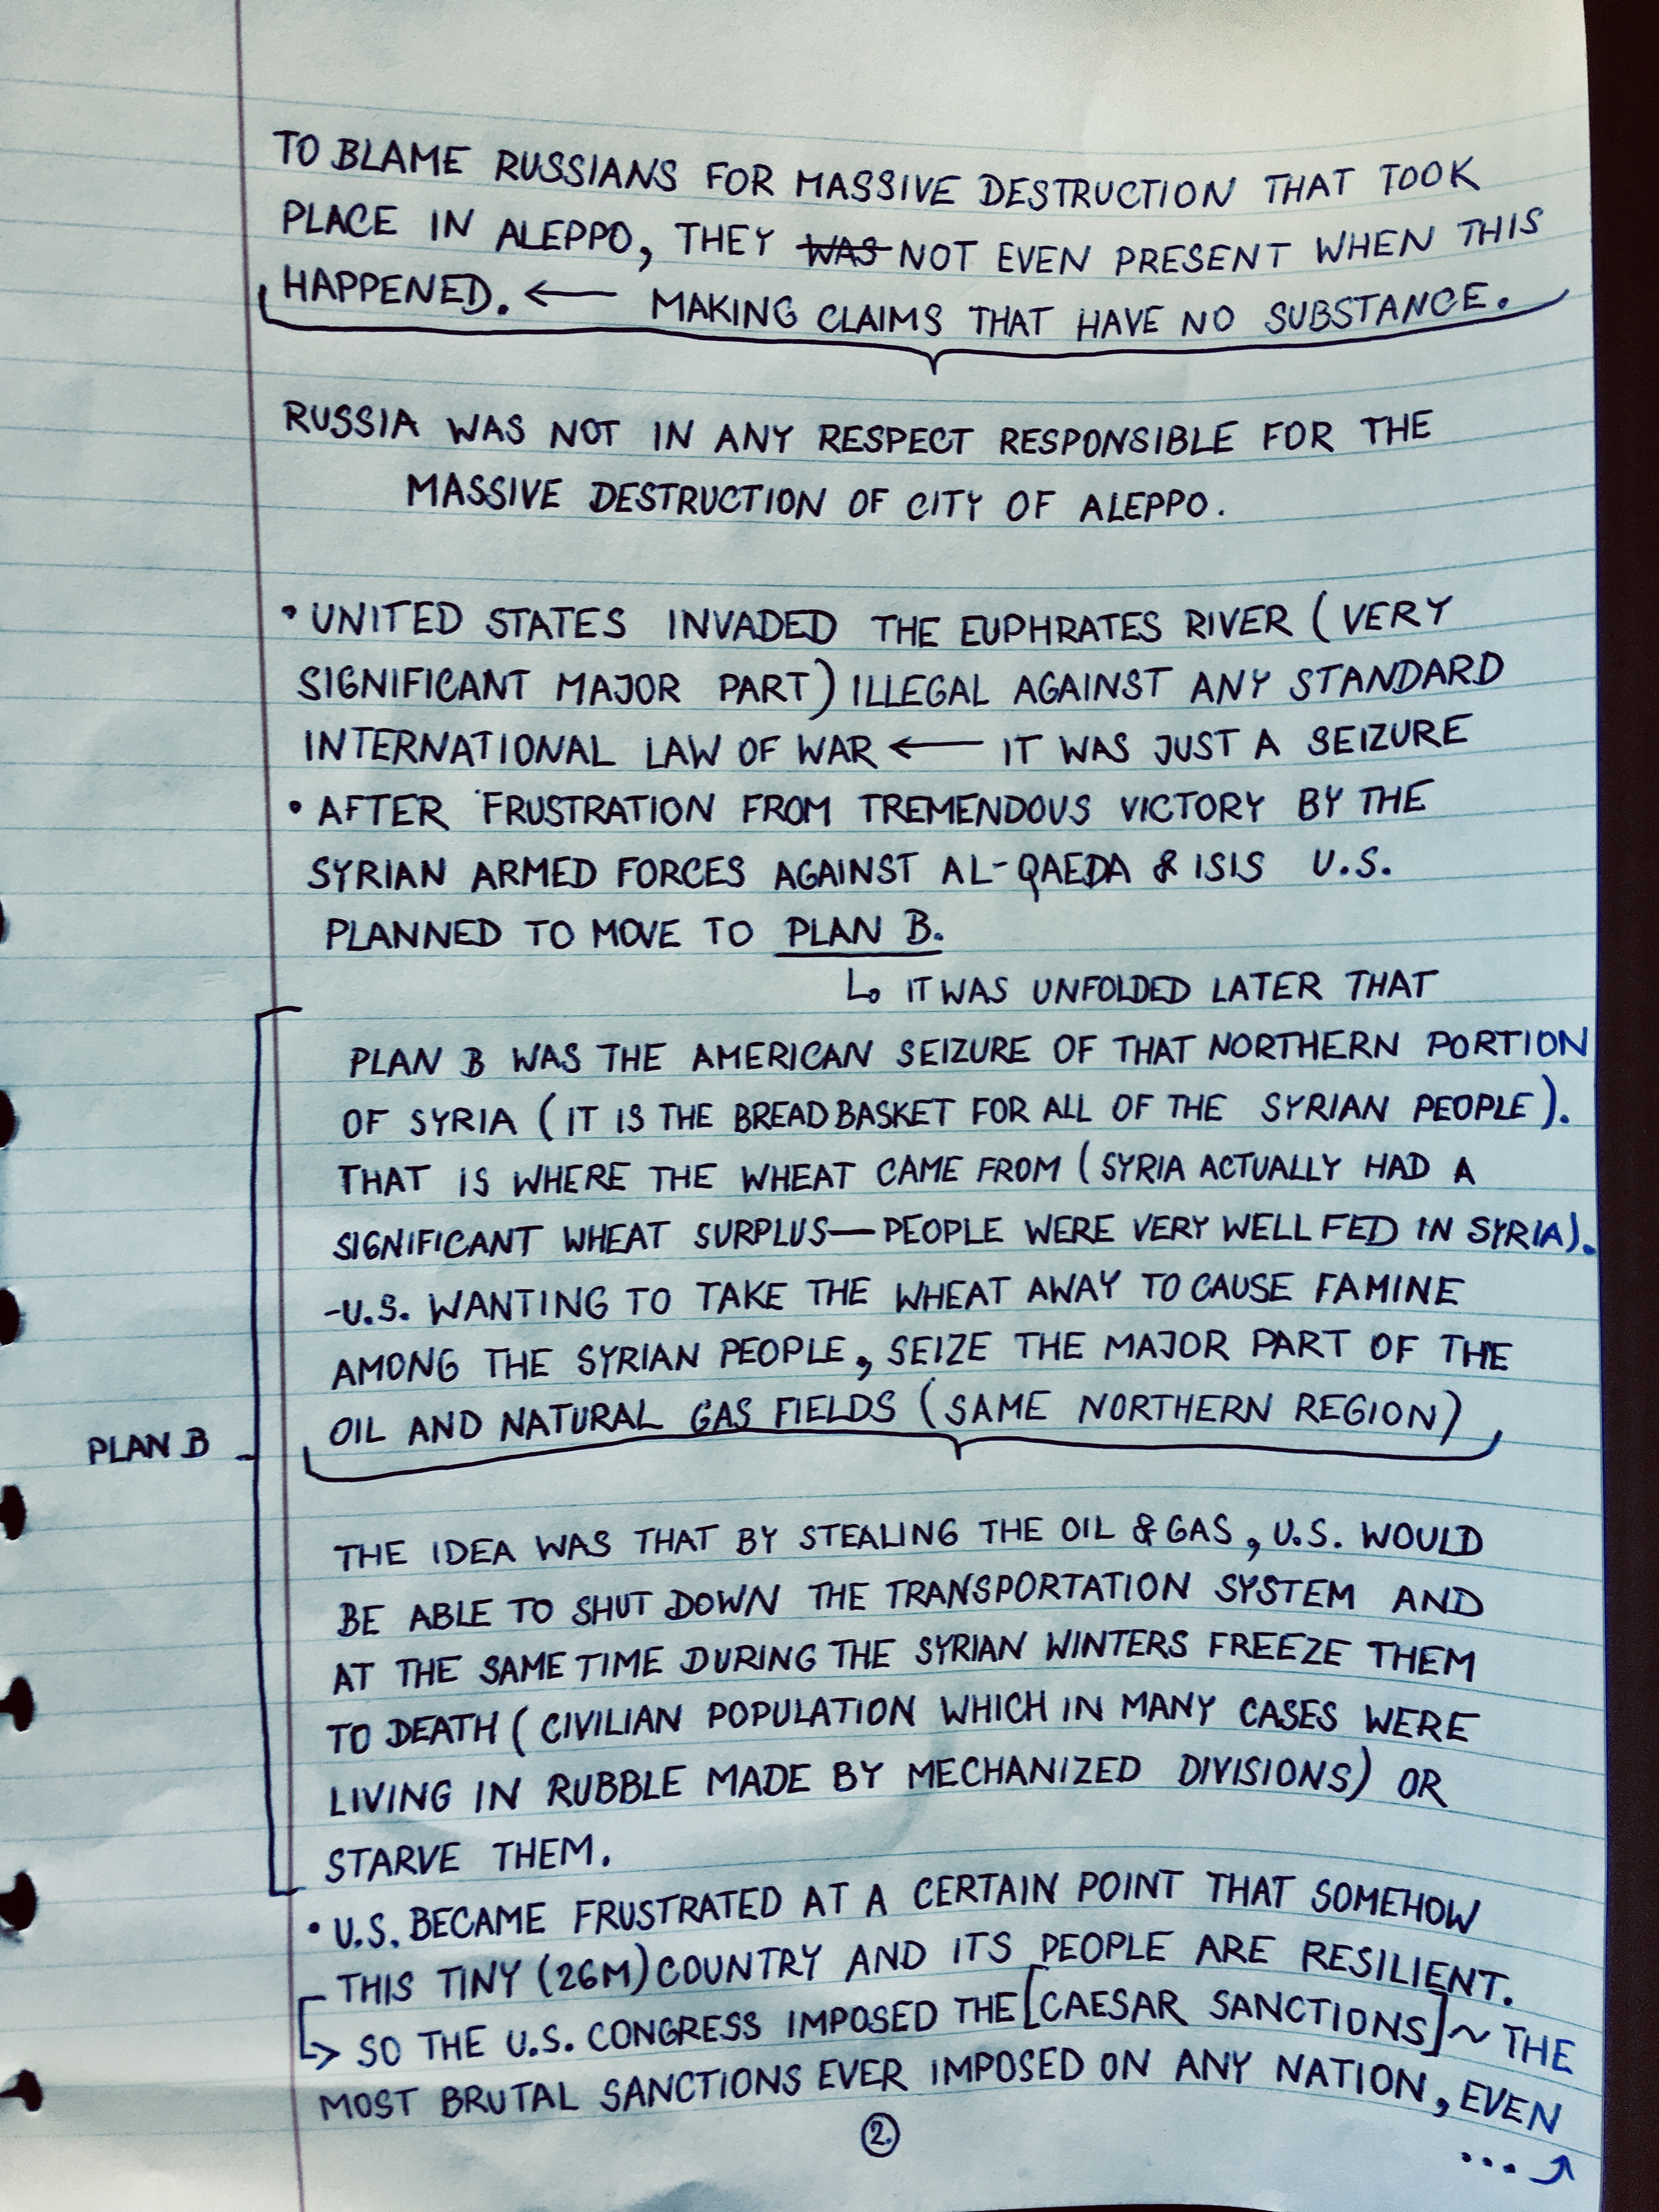 TO BLAME RUSSIANS FOR MASSIVE DESTRUCTION THAT TOOK
PLACE IN ALEPPO, THEY WAS NOT EVEN PRESENT WHEN THIS
HAPPENED. ← MAKING CLAIMS THAT HAVE NO SUBSTANCE.
RUSSIA WAS NOT IN ANY RESPECT RESPONSIBLE FOR THE
MASSIVE DESTRUCTION OF CITY OF ALEPPO.
• UNITED STATES INVADED THE EUPHRATES RIVER (VERY
SIGNIFICANT MAJOR PART) ILLEGAL AGAINST ANY STANDARD
INTERNATIONAL LAW OF WAR ← IT WAS JUST A SEIZURE
• AFTER FRUSTRATION FROM TREMENDOUS VICTORY BY THE
SYRIAN ARMED FORCES AGAINST AL-QAEDA & ISIS U.S.
PLANNED TO MOVE TO PLAN B.
↳ IT WAS UNFOLDED LATER THAT
PLAN B WAS THE AMERICAN SEIZURE OF THAT NORTHERN PORTION
OF SYRIA (IT IS THE BREADBASKET FOR ALL OF THE SYRIAN PEOPLE).
THAT IS WHERE THE WHEAT CAME FROM (SYRIA ACTUALLY HAD A
SIGNIFICANT WHEAT SURPLUS—PEOPLE WERE VERY WELL FED IN SYRIA).
-U.S. WANTING TO TAKE THE WHEAT AWAY TO CAUSE FAMINE
AMONG THE SYRIAN PEOPLE, SEIZE THE MAJOR PART OF THE
OIL AND NATURAL GAS FIELDS (SAME NORTHERN REGION)
PLAN B
THE IDEA WAS THAT BY STEALING THE OIL & GAS, U.S. WOULD
BE ABLE TO SHUT DOWN THE TRANSPORTATION SYSTEM AND
AT THE SAME TIME DURING THE SYRIAN WINTERS FREEZE THEM
TO DEATH (CIVILIAN POPULATION WHICH IN MANY CASES WERE
LIVING IN RUBBLE MADE BY MECHANIZED DIVISIONS) OR
STARVE THEM.
• U.S. BECAME FRUSTRATED AT A CERTAIN POINT THAT SOMEHOW
THIS TINY (26M) COUNTRY AND ITS PEOPLE ARE RESILIENT.
↳ SO THE U.S. CONGRESS IMPOSED THE [CAESAR SANCTIONS] ~ THE
MOST BRUTAL SANCTIONS EVER IMPOSED ON ANY NATION, EVEN
2.
... ↗